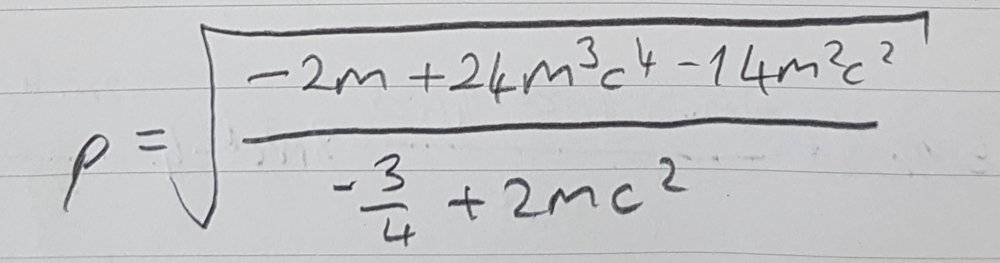 ρ = √((-2m + 24m³c⁴ - 14m²c²) / (-3/4 + 2mc²))